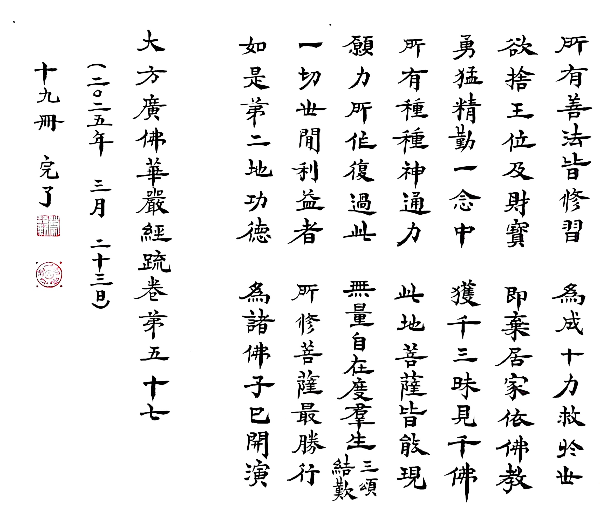 所有善法皆修習　為成十力救於世
欲捨王位及財寶　即棄居家依佛教
勇猛精勤一念中　獲千三昧見千佛
所有種種神通力　此地菩薩皆能現
願力所作復過此　無量自在度羣生 三頌結歎
一切世間利益者　所修菩薩最勝行
如是第二地功德　為諸佛子已開演
大方廣佛華嚴經疏卷第五十七
(二〇二五年 三月 二十三日)
十九冊 完了